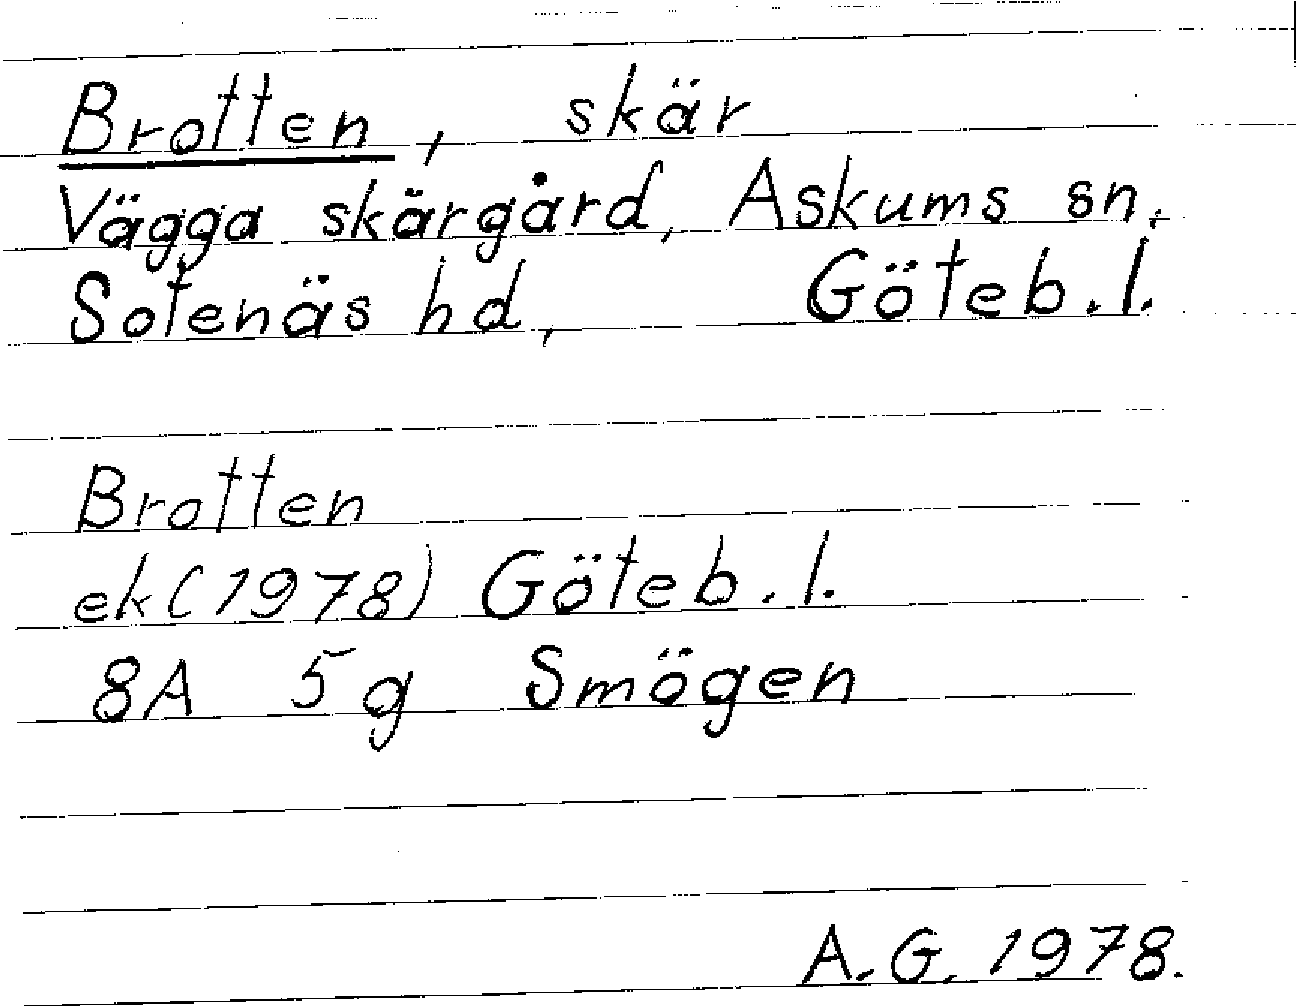 Brotten, skär
Vägga skärgård, Askums sn.
Sotenäs hd, Göteb. l.
Brotten
ek (1978) Göteb. l.
8A 5g Smögen
A. G. 1978.